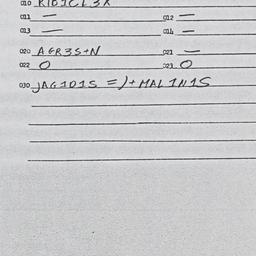 010 RIDICL3X
011 — 012 —
013 — 014 —
020 AGR3S+N 021 —
022 O 023 O
030 JAG1D1S =)+MAL1N1S